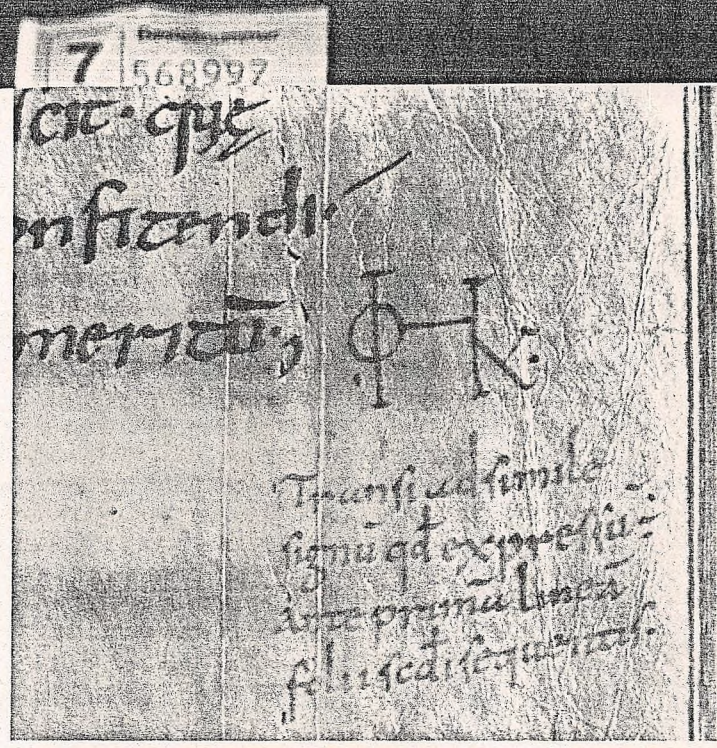 7
568997
cit· que
onfitendi·
meritū·,
Transi ad simile
signū qd expressū
ante primā lineā
sequentis·